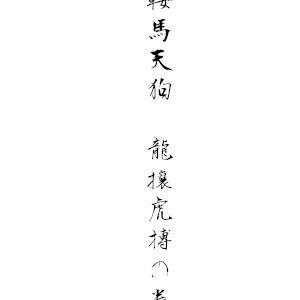 鞍馬天狗 龍攘虎搏の巻